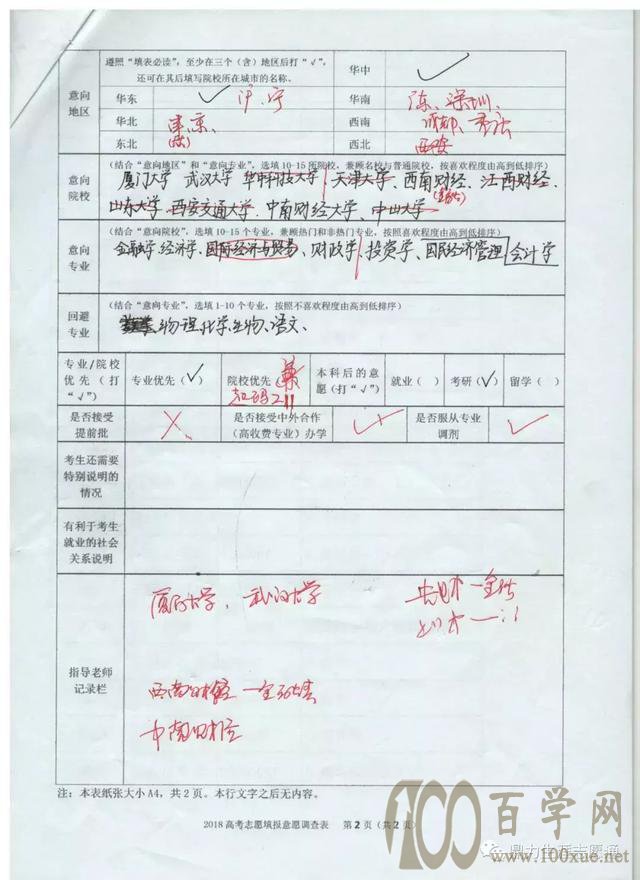 遵照“填表必读”，至少在三个（含）地区后打“√”，
还可在其后填写院校所在城市的名称。
华中 √
意向
地区
华东 √ 沪、宁
华南 深圳
华北 京
西南 成都、重庆
东北
西北 西安
（结合“意向地区”和“意向专业”，选填10-15所院校，兼顾名校与普通院校，按喜欢程度由高到低排序）
意向
院校
厦门大学 武汉大学 华中科技大学、天津大学、西南财经、江西财经、
山东大学 西安交通大学、中南财经大学、中山大学
（结合“意向院校”，选填10-15个专业，兼顾热门和非热门专业，按照喜欢程度由高到低排序）
意向
专业
金融学、经济学、国际经济与贸易、财政学、投资学、国民经济管理 会计学
（结合“意向专业”，选填1-10个专业，按照不喜欢程度由高到低排序）
回避
专业
物理化学生物、语文、
专业/院校
优先（打
“√”）
专业优先（√）
院校优先
本科后的意
愿（打“√”）
就业（ ）
考研（√）
留学（ ）
是否接受
提前批
是否接受中外合作
（高收费专业）办学
是否服从专业
调剂
√
考生还需要
特别说明的
情况
有利于考生
就业的社会
关系说明
指导老师
记录栏
厦门大学、武汉大学
西南财经
中南财经
注：本表纸张大小A4，共2页。本行文字之后无内容。
2018高考志愿填报意愿调查表 第2页（共2页）
100百学网
www.100xue.net